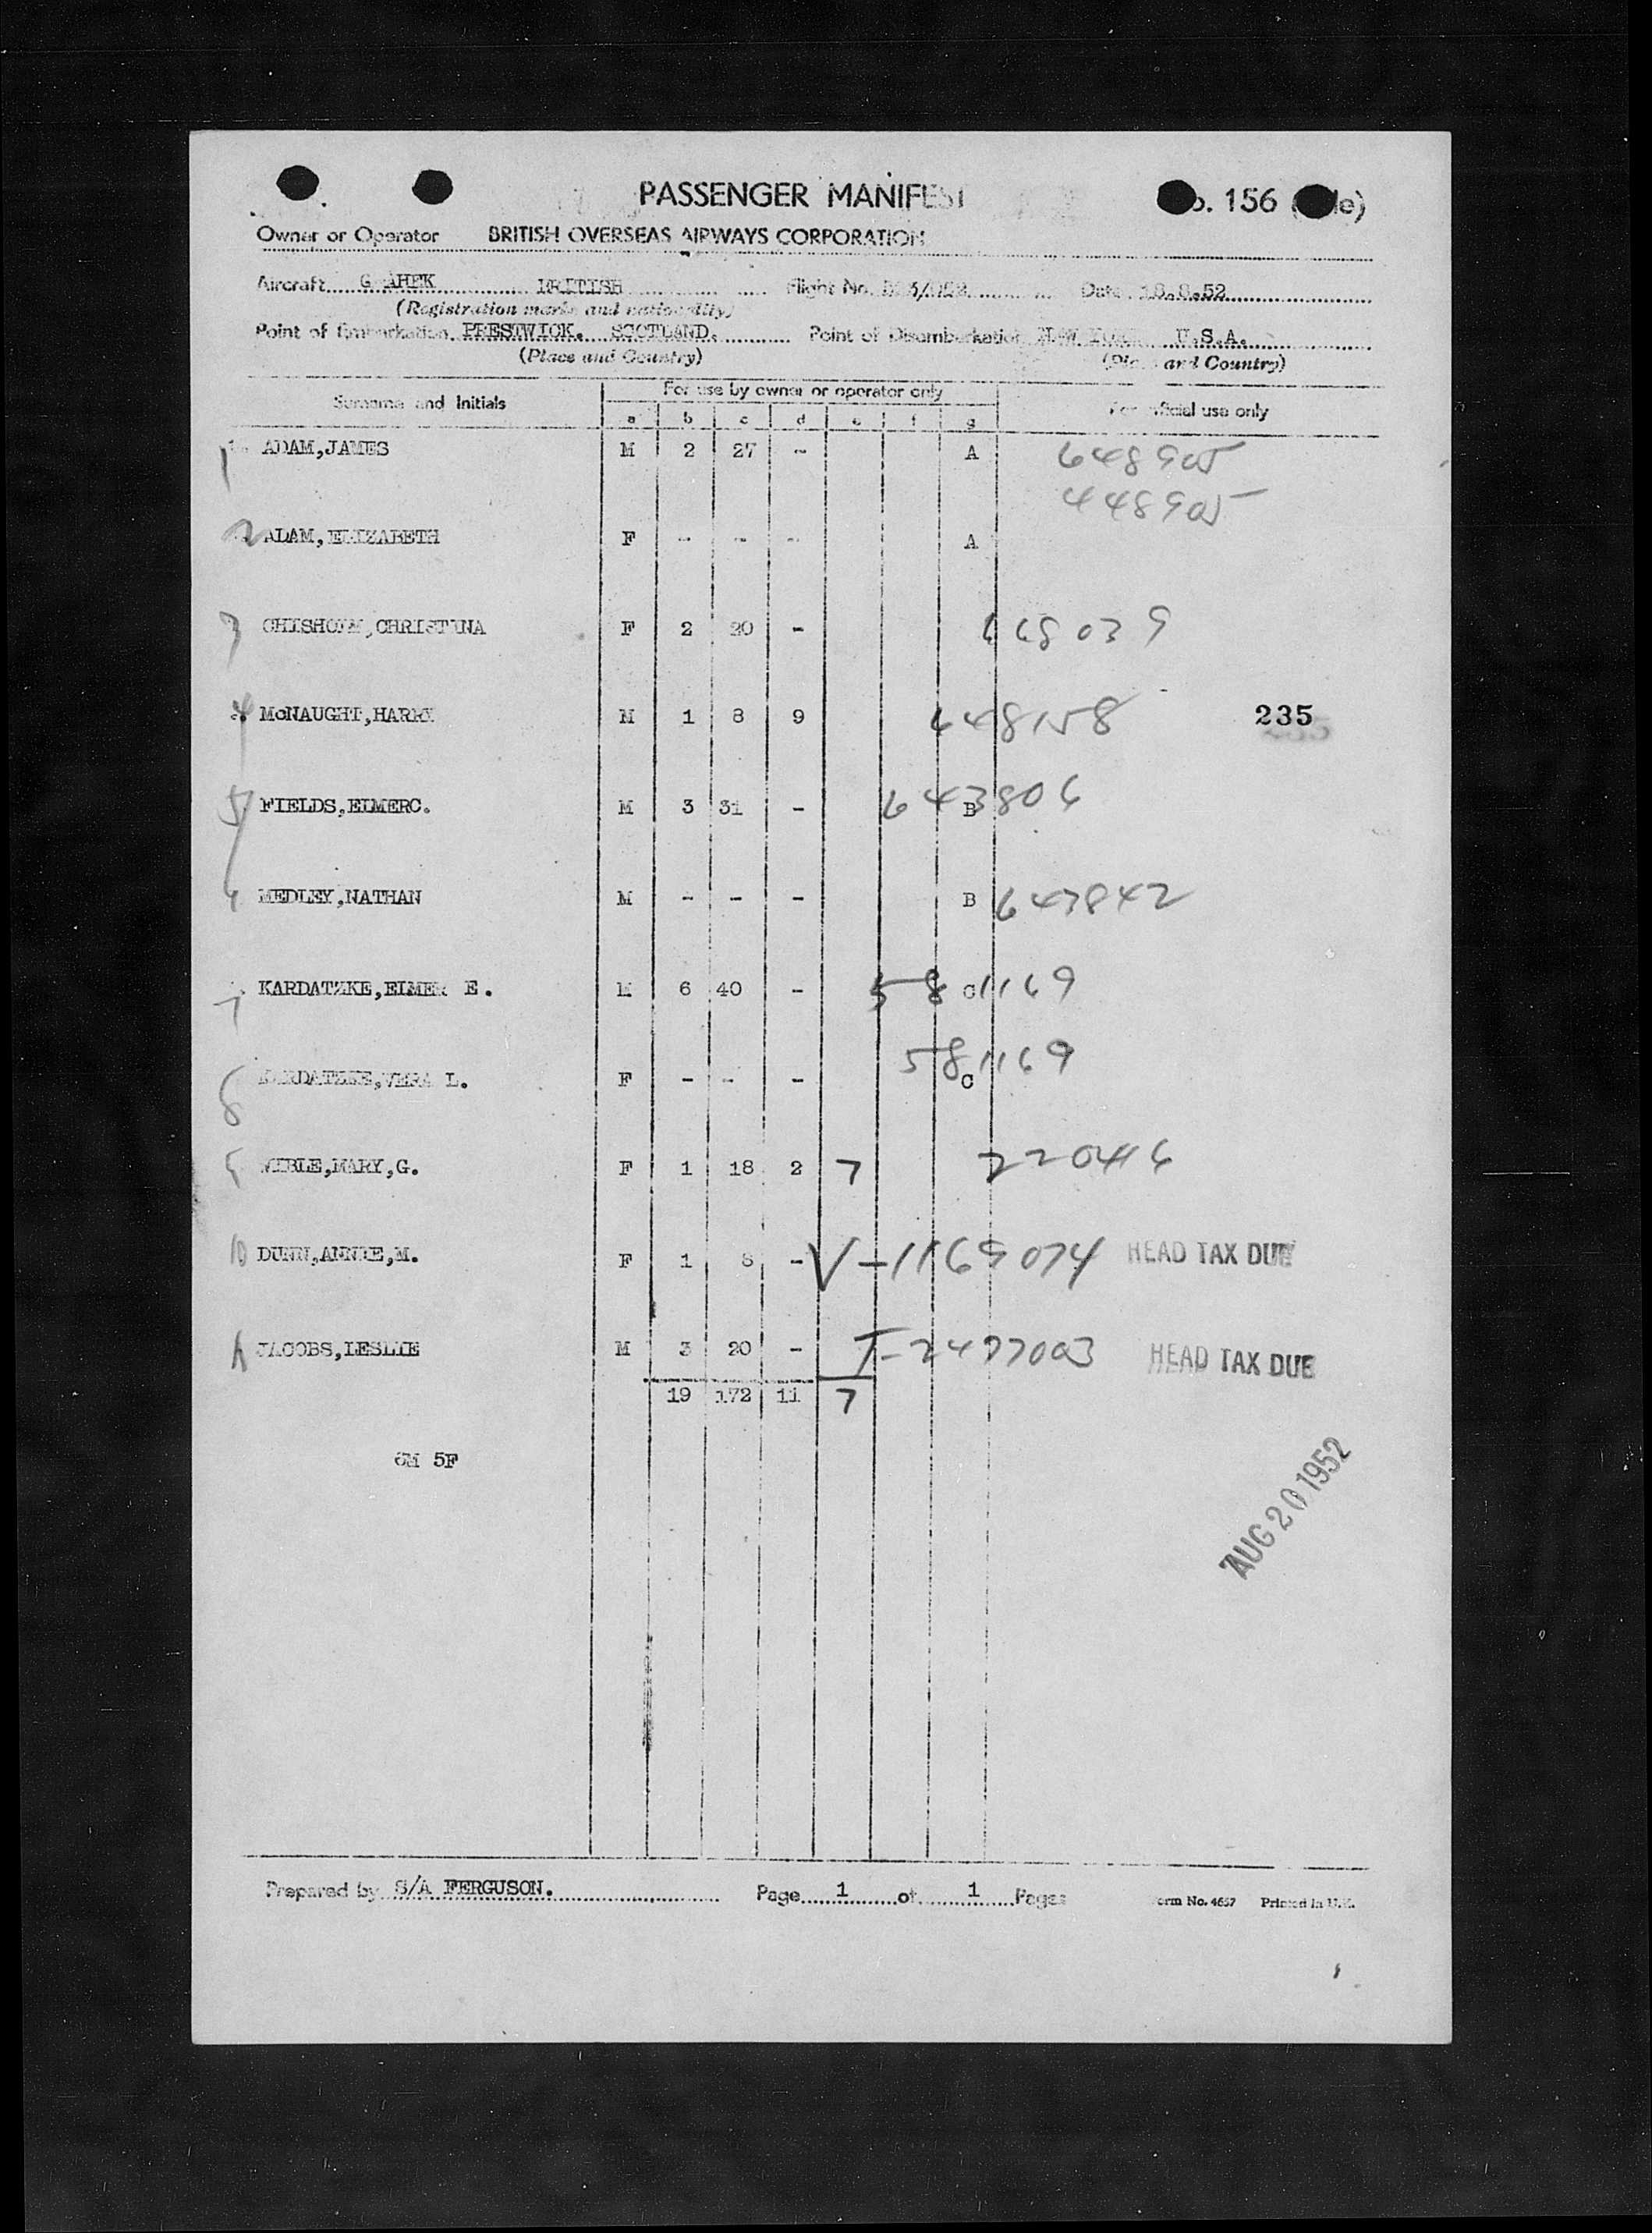 PASSENGER MANIFEST
156
Owner or Operator BRITISH OVERSEAS AIRWAYS CORPORATION
Aircraft BRITISH Flight No. Date 18.8.52
(Registration marks and nationality)
Point of Embarkation PRESTWICK. SCOTLAND. Point of Disembarkation NEW YORK U.S.A.
(Place and Country) (Place and Country)
Surname and Initials For use by owner or operator only For official use only
a b c d e f g
1 ADAM,JAMES M 2 27 - A
2 ADAM, ELIZABETH F - - - A
3 CHISHOLM,CHRISTINA F 2 20 -
4 McNAUGHT,HARRY M 1 8 9 235
5 FIELDS,ELMERC. M 3 31 - B
MEDLEY,NATHAN M - - - B
7 KARDATZKE,ELMER E. M 6 40 - C 581169
8 KARDATZKE,VERA L. F - - - C 581169
MARY,G. F 1 18 2 7
10 DUNN,ANNIE,M. F 1 8 - HEAD TAX DUE
JACOBS,LESLIE M 3 20 - HEAD TAX DUE
19 172 11 7
6M 5F
AUG 20 1952
Prepared by S/A FERGUSON. Page 1 of 1 Pages Form No. 4657 Printed in U.K.